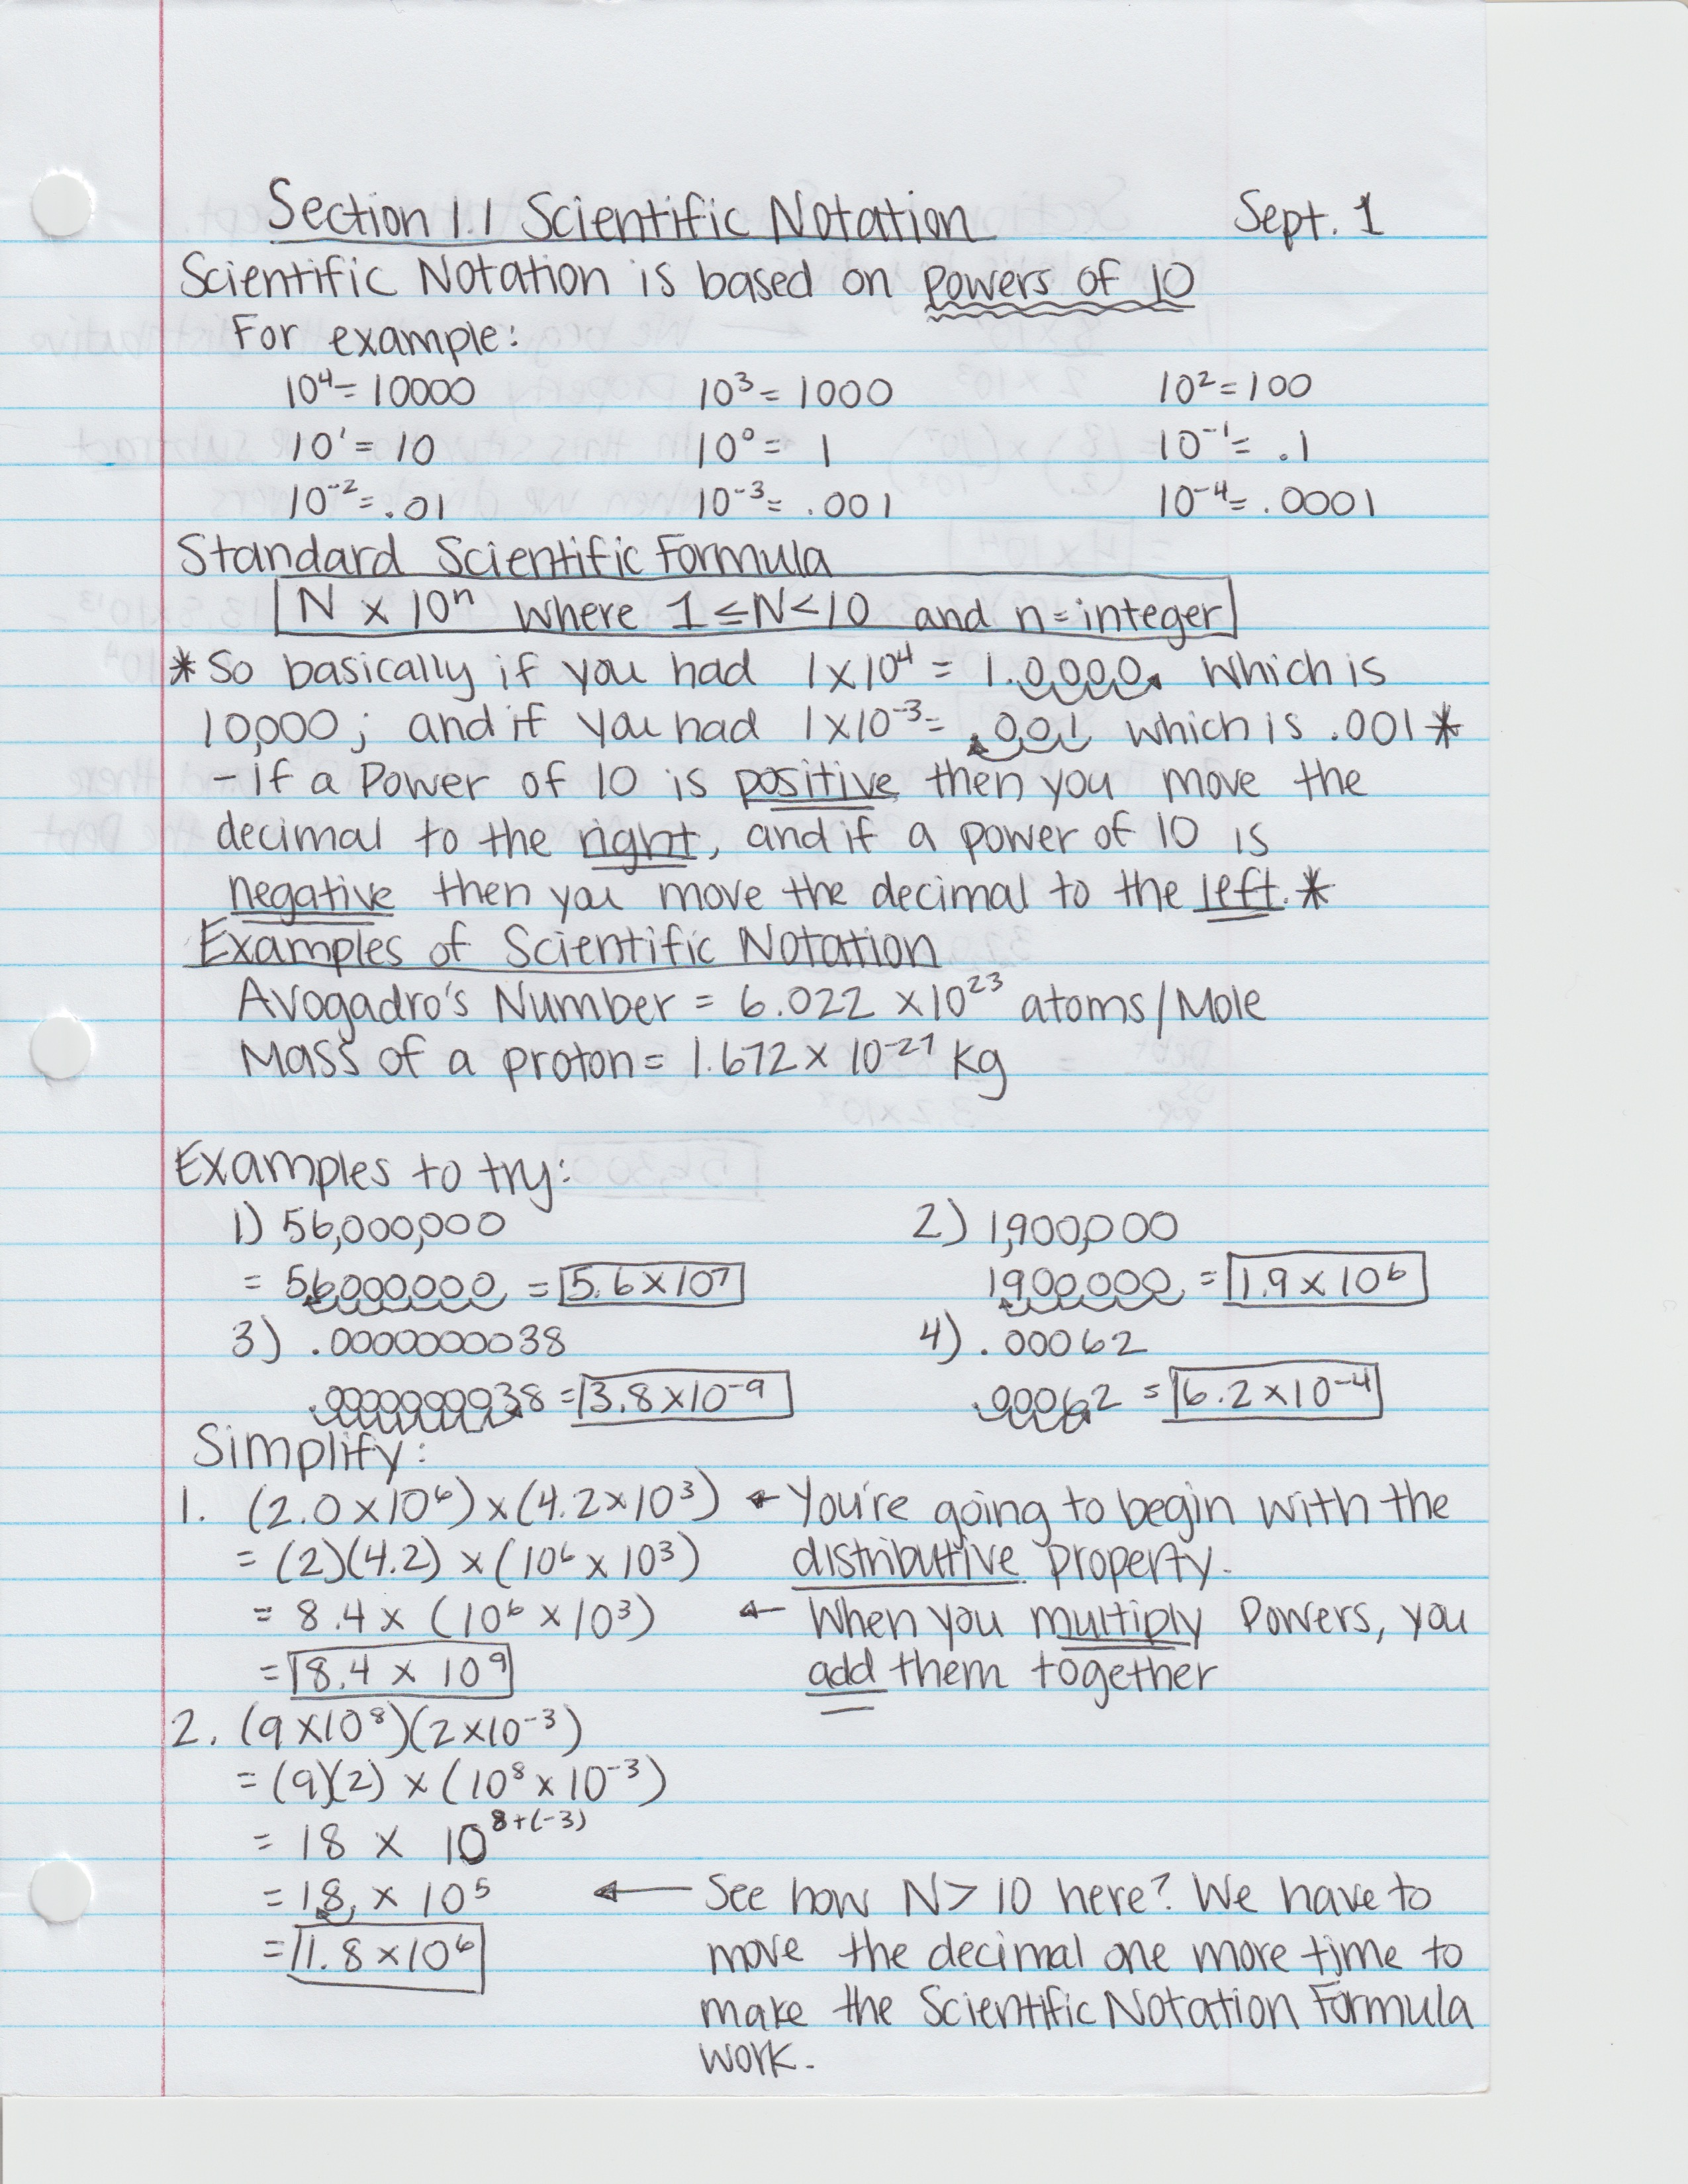 Section 1.1 Scientific Notation Sept. 1
Scientific Notation is based on powers of 10
For example:
10⁴= 10000 10³= 1000 10²= 100
10¹= 10 10⁰= 1 10⁻¹= .1
10⁻²= .01 10⁻³= .001 10⁻⁴= .0001
Standard Scientific Formula
N x 10ⁿ where 1 ≤ N < 10 and n = integer
*So basically if you had 1x10⁴ = 1.0000. which is
10,000; and if you had 1x10⁻³= .001 which is .001*
- if a Power of 10 is positive then you move the
decimal to the right, and if a power of 10 is
negative then you move the decimal to the left.*
Examples of Scientific Notation
Avogadro's Number = 6.022 x10²³ atoms/Mole
Mass of a proton = 1.672 x 10⁻²⁷ kg
Examples to try:
1) 56,000,000 2) 1,900,000
= 56000000 = 5.6 x 10⁷ 1900000 = 1.9 x 10⁶
3) .0000000038 4) .00062
.0000000038 = 3.8x10⁻⁹ .00062 = 6.2 x 10⁻⁴
Simplify:
1. (2.0 x 10⁶) x (4.2 x 10³) ← You're going to begin with the
= (2)(4.2) x (10⁶ x 10³) distributive property.
= 8.4 x (10⁶ x 10³) ← When you multiply Powers, you
= 8.4 x 10⁹ add them together
2. (9 x10⁸)(2 x10⁻³)
= (9)(2) x (10⁸ x 10⁻³)
= 18 x 10⁸⁺⁽⁻³⁾
= 18. x 10⁵ ← See how N > 10 here? We have to
= 1.8 x10⁶ move the decimal one more time to
make the Scientific Notation Formula
work.